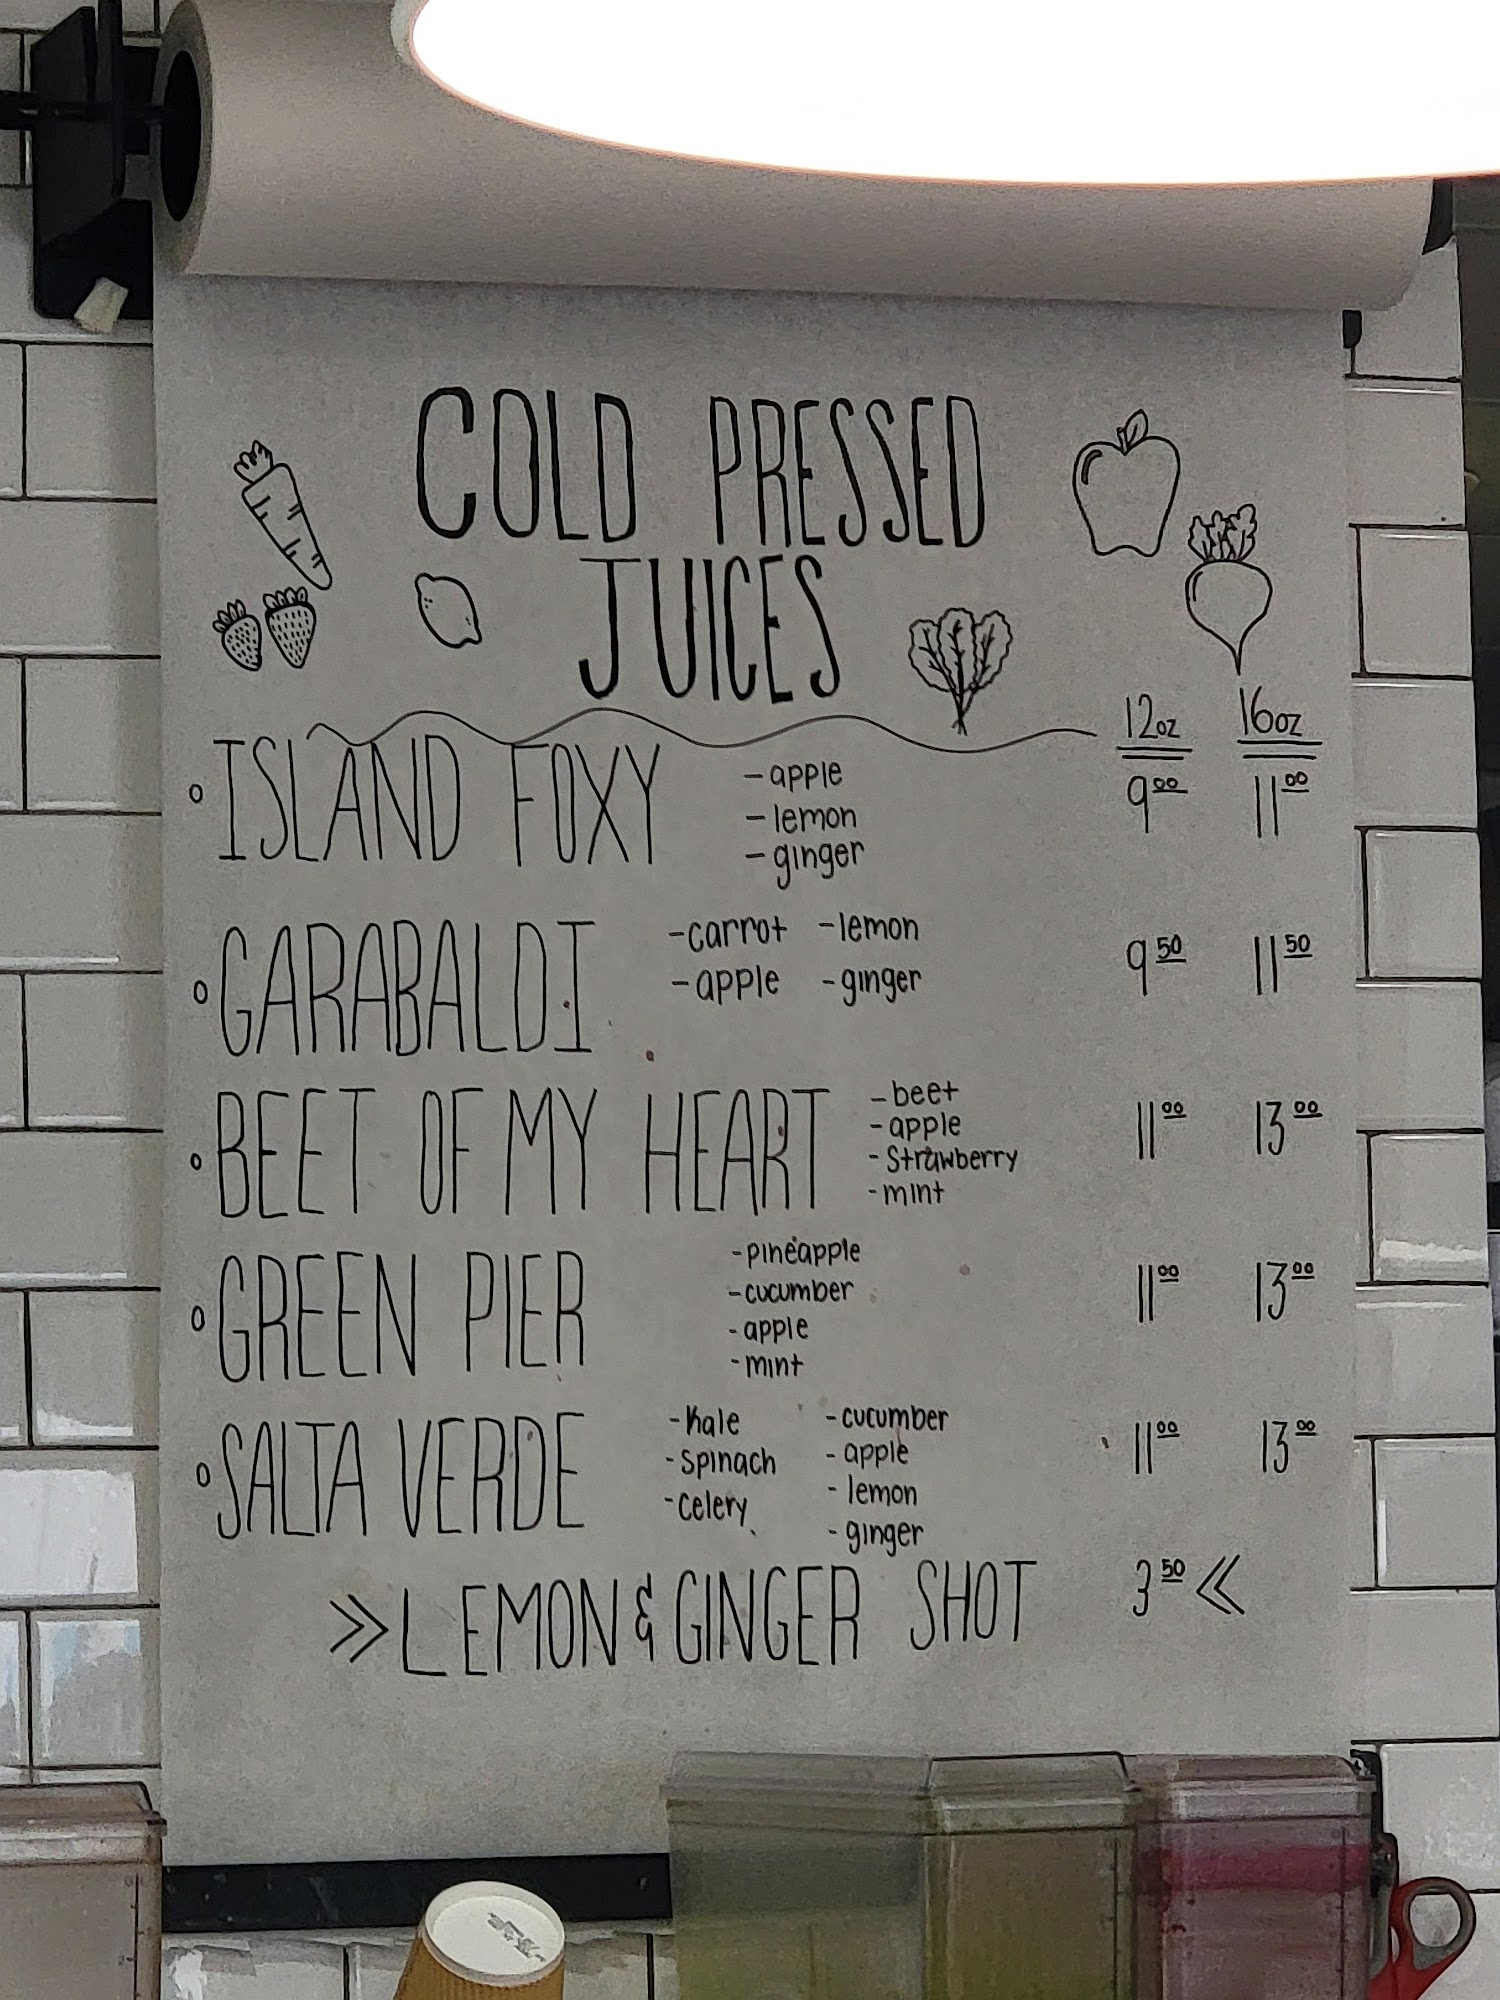 COLD PRESSED
JUICES
12oz 16oz
ISLAND FOXY -apple 9.00 11.00
-lemon
-ginger
GARABALDI -carrot -lemon 9.50 11.50
-apple -ginger
BEET OF MY HEART -beet 11.00 13.00
-apple
-Strawberry
-mint
GREEN PIER -pineapple 11.00 13.00
-cucumber
-apple
-mint
SALTA VERDE -Kale -cucumber 11.00 13.00
-Spinach -apple
-Celery -lemon
-ginger
>> LEMON & GINGER SHOT 3.50 <<